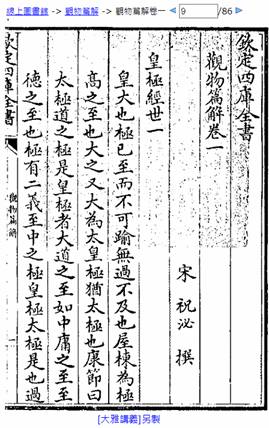 線上圖書館 -> 觀物篇解 -> 觀物篇解卷一 9 /86
欽定四庫全書
觀物篇解卷一
宋 祝泌 撰
皇極經世一
皇大也極已至而不可踰無過不及也屋棟為極
高之至也大之又大為太皇極猶太極也康節曰
太極道之極是皇極者大道之至如中庸之至至
德之至也極有二義至中之極皇極太極是也過
欽定四庫全書
觀物篇解
一
[大雅講義]另製